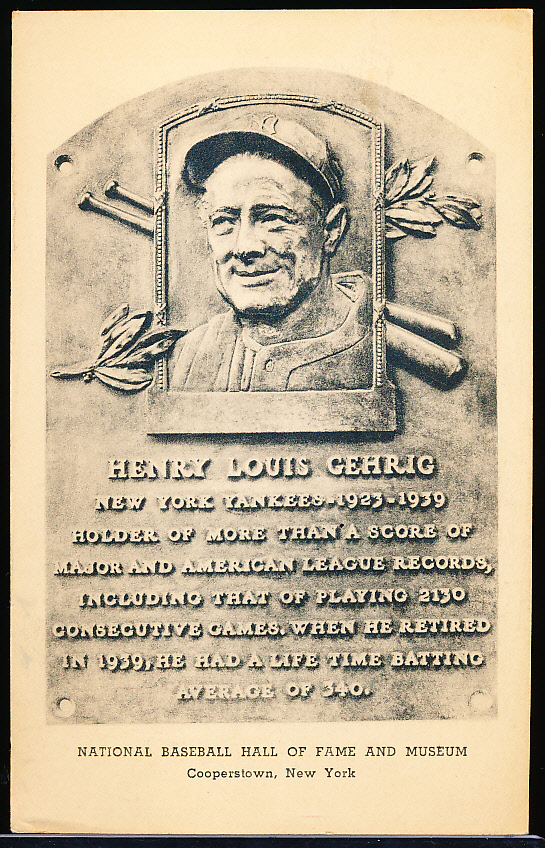 NY
HENRY LOUIS GEHRIG
NEW YORK YANKEES-1923-1939
HOLDER OF MORE THAN A SCORE OF
MAJOR AND AMERICAN LEAGUE RECORDS,
INCLUDING THAT OF PLAYING 2130
CONSECUTIVE GAMES. WHEN HE RETIRED
IN 1939, HE HAD A LIFE TIME BATTING
AVERAGE OF 340.
NATIONAL BASEBALL HALL OF FAME AND MUSEUM
Cooperstown, New York